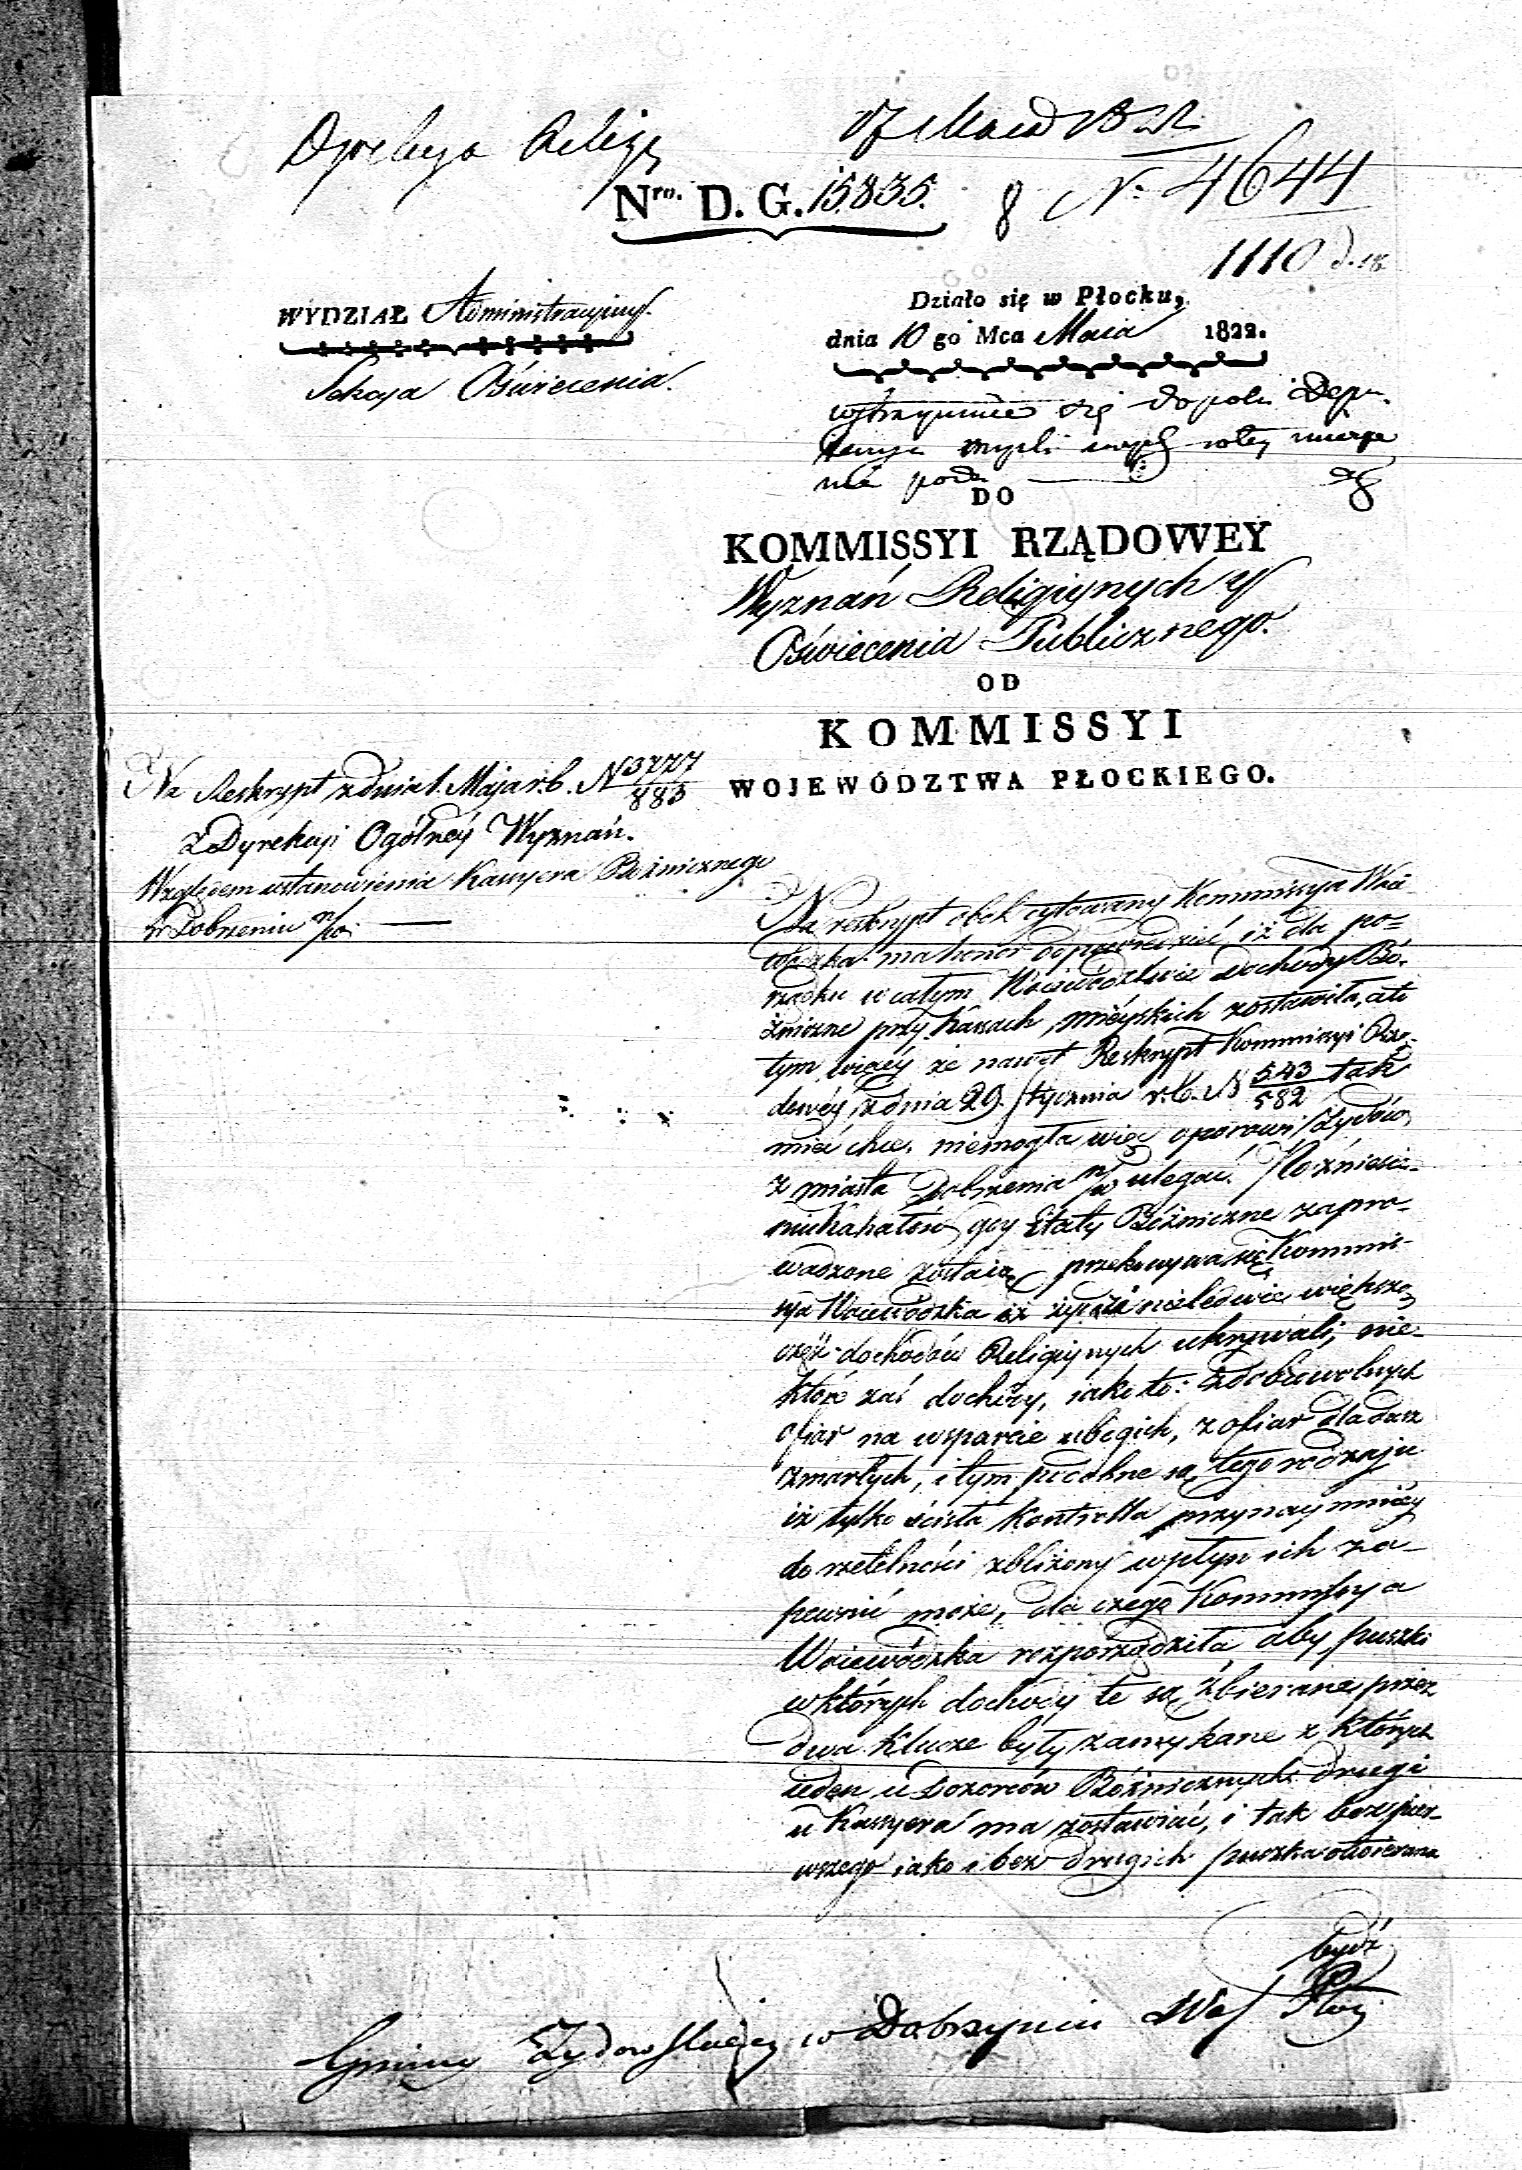 Dyrekcya Religij
17 Maia 1822
Nro. D. G. 15835. 8 N: 4644
1110
WYDZIAŁ Administracyiny.
Sekcya Oświecenia.
Działo się w Płocku,
dnia 10 go Mca Maia 1822.
wstrzymać się dopóki
DO
KOMMISSYI RZĄDOWEY
Wyznań Religiynych y
Oświecenia Publicznego.
OD
KOMMISSYI
WOJEWÓDZTWA PŁOCKIEGO.
Na Reskrypt z dnia 1. Maja r.b. N 3777/883
z Dyrekcyi Ogólnéy Wyznań.
Względem ustanowienia Kassyera Bóżnicznego
w Dobrzeniu n/
Na reskrypt obok cytowany Kommissya Woie
wódzka ma honor odpowiedzieć, iż dla po=
rządku w całym Woiewództwie dochody Bó-
żniczne przy Kassach miéyskich zostawiła, a to
tym więcéy że nawet Reskrypt Kommissyi Rzą-
dowéy z dnia 29. Stycznia r.b. N 543/582 tak
mieć chce, niemogła więc oporowi Żydów
z miasta Dobrzenia n/w ulegać. Po zniesie-
niu Kahałów gdy Etaty Bóżniczne zapro-
wadzone zostaią przekonywa się Kommis-
sya Woiewódzka iż żydzi nieledwie większą
część dochodów Religiynych ukrywali, nie-
które zaś dochody, iako to: z dobrowolnych
ofiar na wsparcie ubogich, z ofiar dla dusz
zmarłych, i tym podobne są tego rodzaju
iż tylko ścisła Kontrolla przynaymniéy
do rzetelności zbliżony wpływ ich za-
pewnić może, dla czego Kommissya
Woiewódzka rozporządziła, aby puszki
w których dochody te są zbierane przez
dwa klucze były zamykane z których
ieden u Dozorców Bóżnicznych drugi
u Kassyera ma zostawać, i tak bez pier-
wszego iako i bez drugich puszka otwierana
bydź
Gminy Żydowskiey w Dobrzyniu Wo/ Płoc: